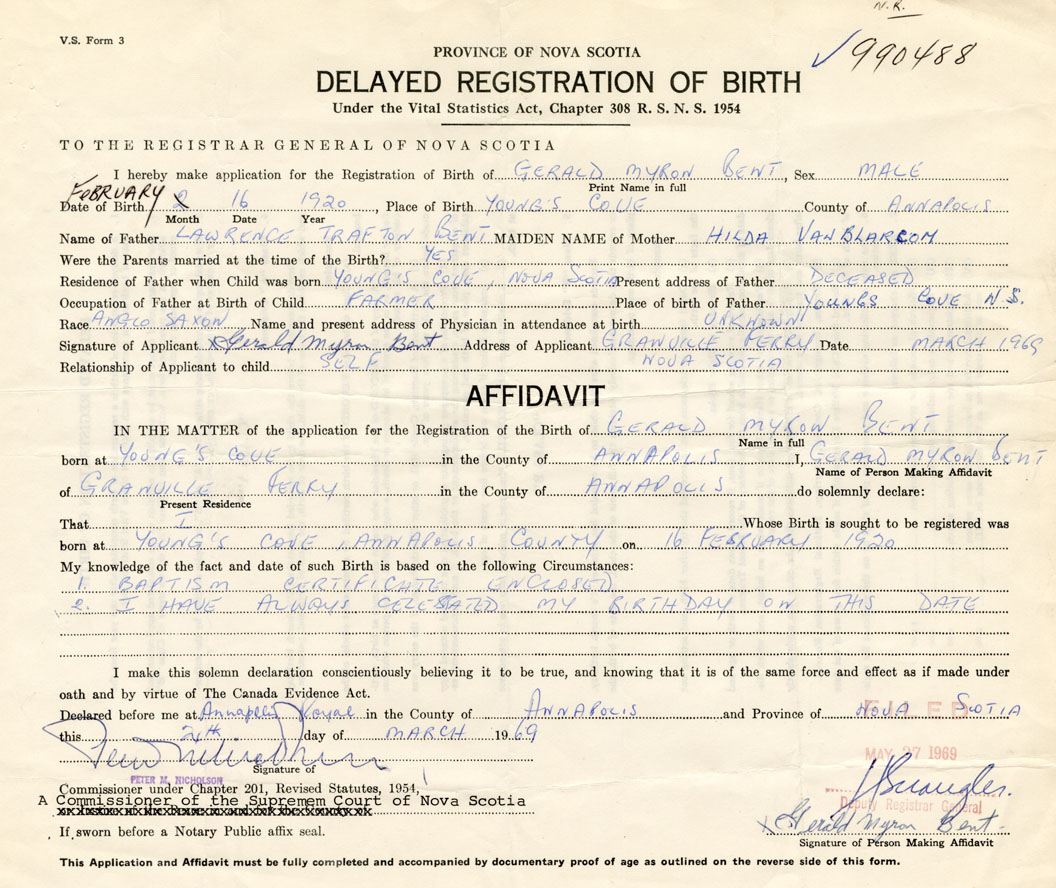 N.R.
V.S. Form 3
PROVINCE OF NOVA SCOTIA
✓990488
DELAYED REGISTRATION OF BIRTH
Under the Vital Statistics Act, Chapter 308 R. S. N. S. 1954
TO THE REGISTRAR GENERAL OF NOVA SCOTIA
I hereby make application for the Registration of Birth of GERALD MYRON BENT, Sex MALE
Print Name in full
FEBRUARY
Date of Birth 2 16 1920, Place of Birth YOUNG'S COVE County of ANNAPOLIS
Month Date Year
Name of Father LAWRENCE TRAFTON BENT MAIDEN NAME of Mother HILDA VANBLARCOM
Were the Parents married at the time of the Birth? YES
Residence of Father when Child was born YOUNG'S COVE, NOVA SCOTIA Present address of Father DECEASED
Occupation of Father at Birth of Child FARMER Place of birth of Father YOUNGS COVE N.S.
Race ANGLO SAXON Name and present address of Physician in attendance at birth UNKNOWN
Signature of Applicant x Gerald Myron Bent Address of Applicant GRANVILLE FERRY Date MARCH 1969
Relationship of Applicant to child SELF NOVA SCOTIA
AFFIDAVIT
IN THE MATTER of the application for the Registration of the Birth of GERALD MYRON BENT
Name in full
born at YOUNG'S COVE in the County of ANNAPOLIS I, GERALD MYRON BENT
Name of Person Making Affidavit
of GRANVILLE FERRY in the County of ANNAPOLIS do solemnly declare:
Present Residence
That I Whose Birth is sought to be registered was
born at YOUNG'S COVE, ANNAPOLIS COUNTY on 16 FEBRUARY 1920
My knowledge of the fact and date of such Birth is based on the following Circumstances:
1. BAPTISM CERTIFICATE ENCLOSED
2. I HAVE ALWAYS CELEBRATED MY BIRTHDAY ON THIS DATE
I make this solemn declaration conscientiously believing it to be true, and knowing that it is of the same force and effect as if made under
oath and by virtue of The Canada Evidence Act.
Declared before me at Annapolis Royal in the County of ANNAPOLIS and Province of NOVA SCOTIA
this day of MARCH 1969
MAY 27 1969
Signature of
PETER M. NICHOLSON
Commissioner under Chapter 201, Revised Statutes, 1954,
A Commissioner of the Supremem Court of Nova Scotia
Deputy Registrar General
x Gerald Myron Bent
If sworn before a Notary Public affix seal.
Signature of Person Making Affidavit
This Application and Affidavit must be fully completed and accompanied by documentary proof of age as outlined on the reverse side of this form.